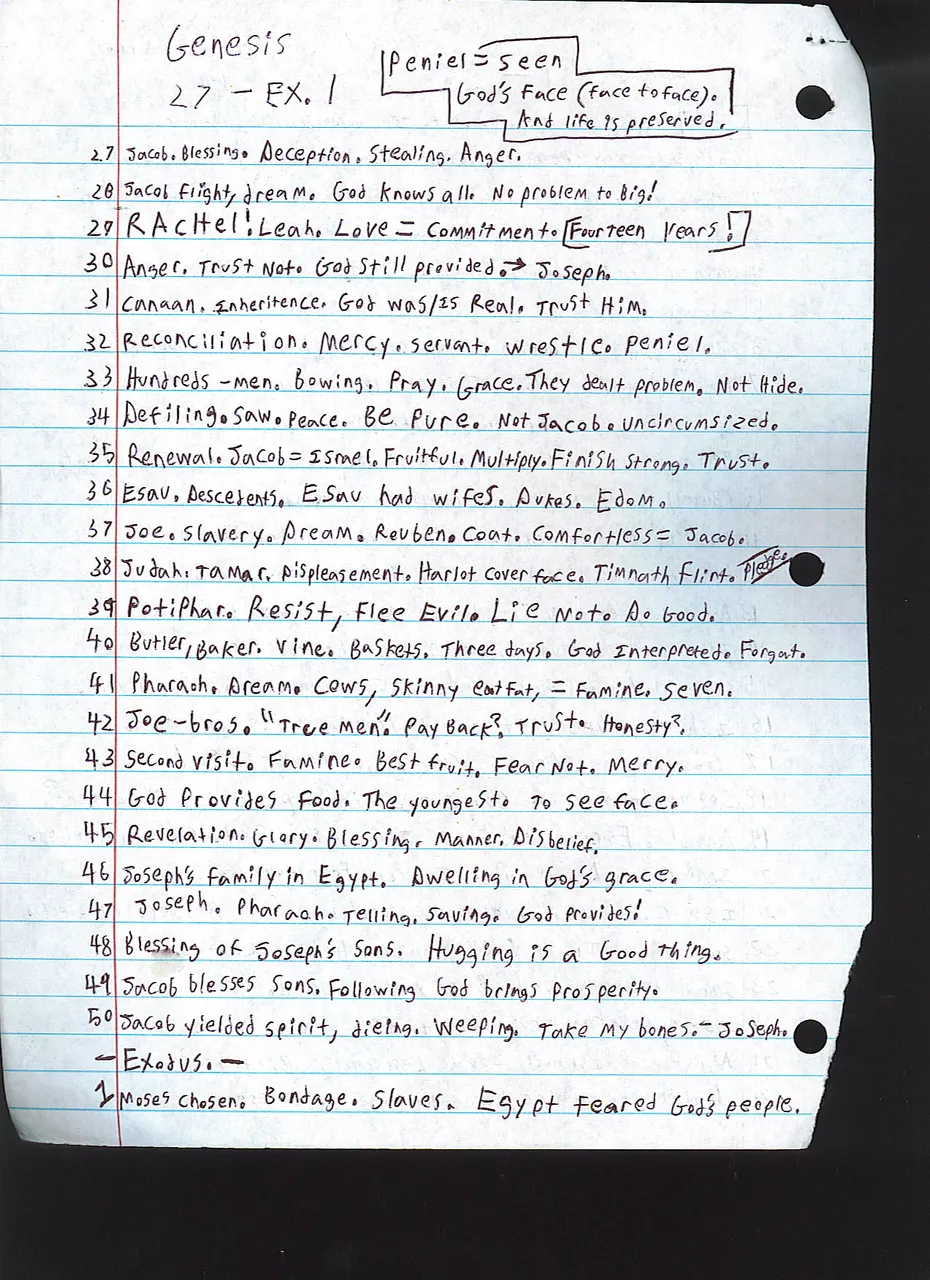 Genesis
27 - EX. 1
Peniel = seen
God's Face (face to face).
And life is preserved.
27 Jacob. Blessing. Deception. Stealing. Anger.
28 Jacob flight, dream. God knows all. No problem to Big!
29 RACHEl! Leah. Love = commitment to [Fourteen Years!]
30 Anger. Trust Not. God still provided. → Joseph.
31 Canaan. Inheritence. God was/is Real. Trust Him.
32 Reconciliation. Mercy. servant. wrestle. peniel.
33 Hundreds -men. Bowing. Pray. Grace. They dealt problem. Not Hide.
34 Defiling. Saw. Peace. Be Pure. Not Jacob. uncircumsized.
35 Renewal. Jacob = Israel. Fruitful. Multiply. Finish strong. Trust.
36 Esau. Descedents. Esau had wifes. Dukes. Edom.
37 Joe. Slavery. Dream. Reuben. Coat. Comfortless = Jacob.
38 Judah. Tamar. Displeasement. Harlot cover face. Timnath Flint. Pledge.
39 Potiphar. Resist, Flee Evil. Lie Not. Do Good.
40 Butler, Baker. Vine. Baskets. Three days. God Interpreted. Forgat.
41 Pharaoh. Dream. Cows, skinny eat fat, = Famine. seven.
42 Joe-bros. "True men". Pay Back? Trust. Honesty?.
43 Second visit. Famine. Best fruit. Fear Not. Merry.
44 God Provides Food. The youngest. To see face.
45 Revelation. Glory. Blessing. Manner. Disbelief.
46 Joseph's family in Egypt. Dwelling in God's grace.
47 Joseph. Pharaoh. Telling. Saving. God provides!
48 Blessing of Joseph's sons. Hugging is a Good thing.
49 Jacob blesses sons. Following God brings prosperity.
50 Jacob yielded spirit, dieing. Weeping. Take my bones. - Joseph.
- Exodus. -
1 Moses chosen. Bondage. Slaves. Egypt feared God's people.